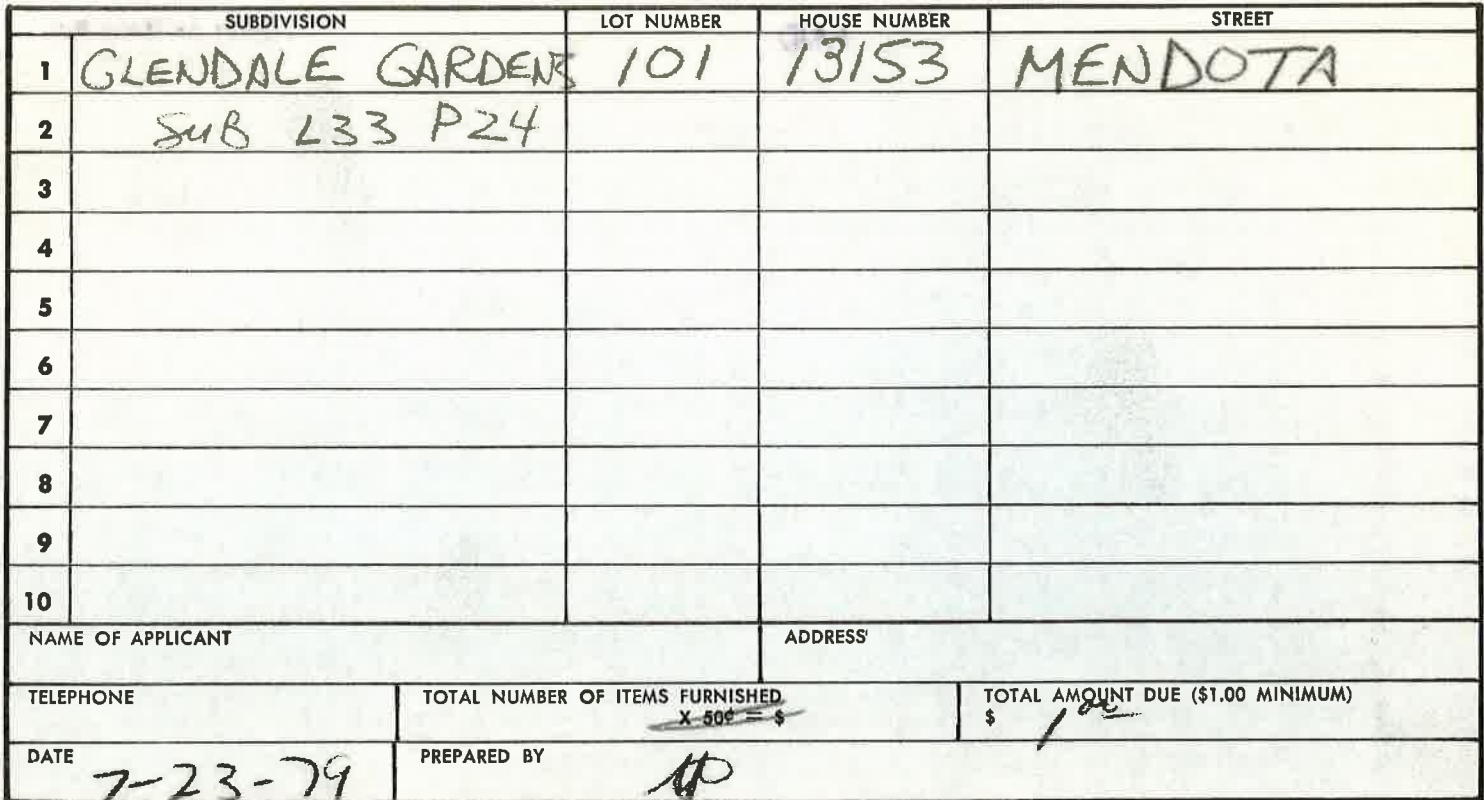 SUBDIVISION LOT NUMBER HOUSE NUMBER STREET
1 GLENDALE GARDENS 101 13153 MENDOTA
2 SUB L33 P24
3
4
5
6
7
8
9
10
NAME OF APPLICANT ADDRESS
TELEPHONE TOTAL NUMBER OF ITEMS FURNISHED TOTAL AMOUNT DUE ($1.00 MINIMUM)
X 50¢ = $ $ 1 00
DATE PREPARED BY
7-23-79